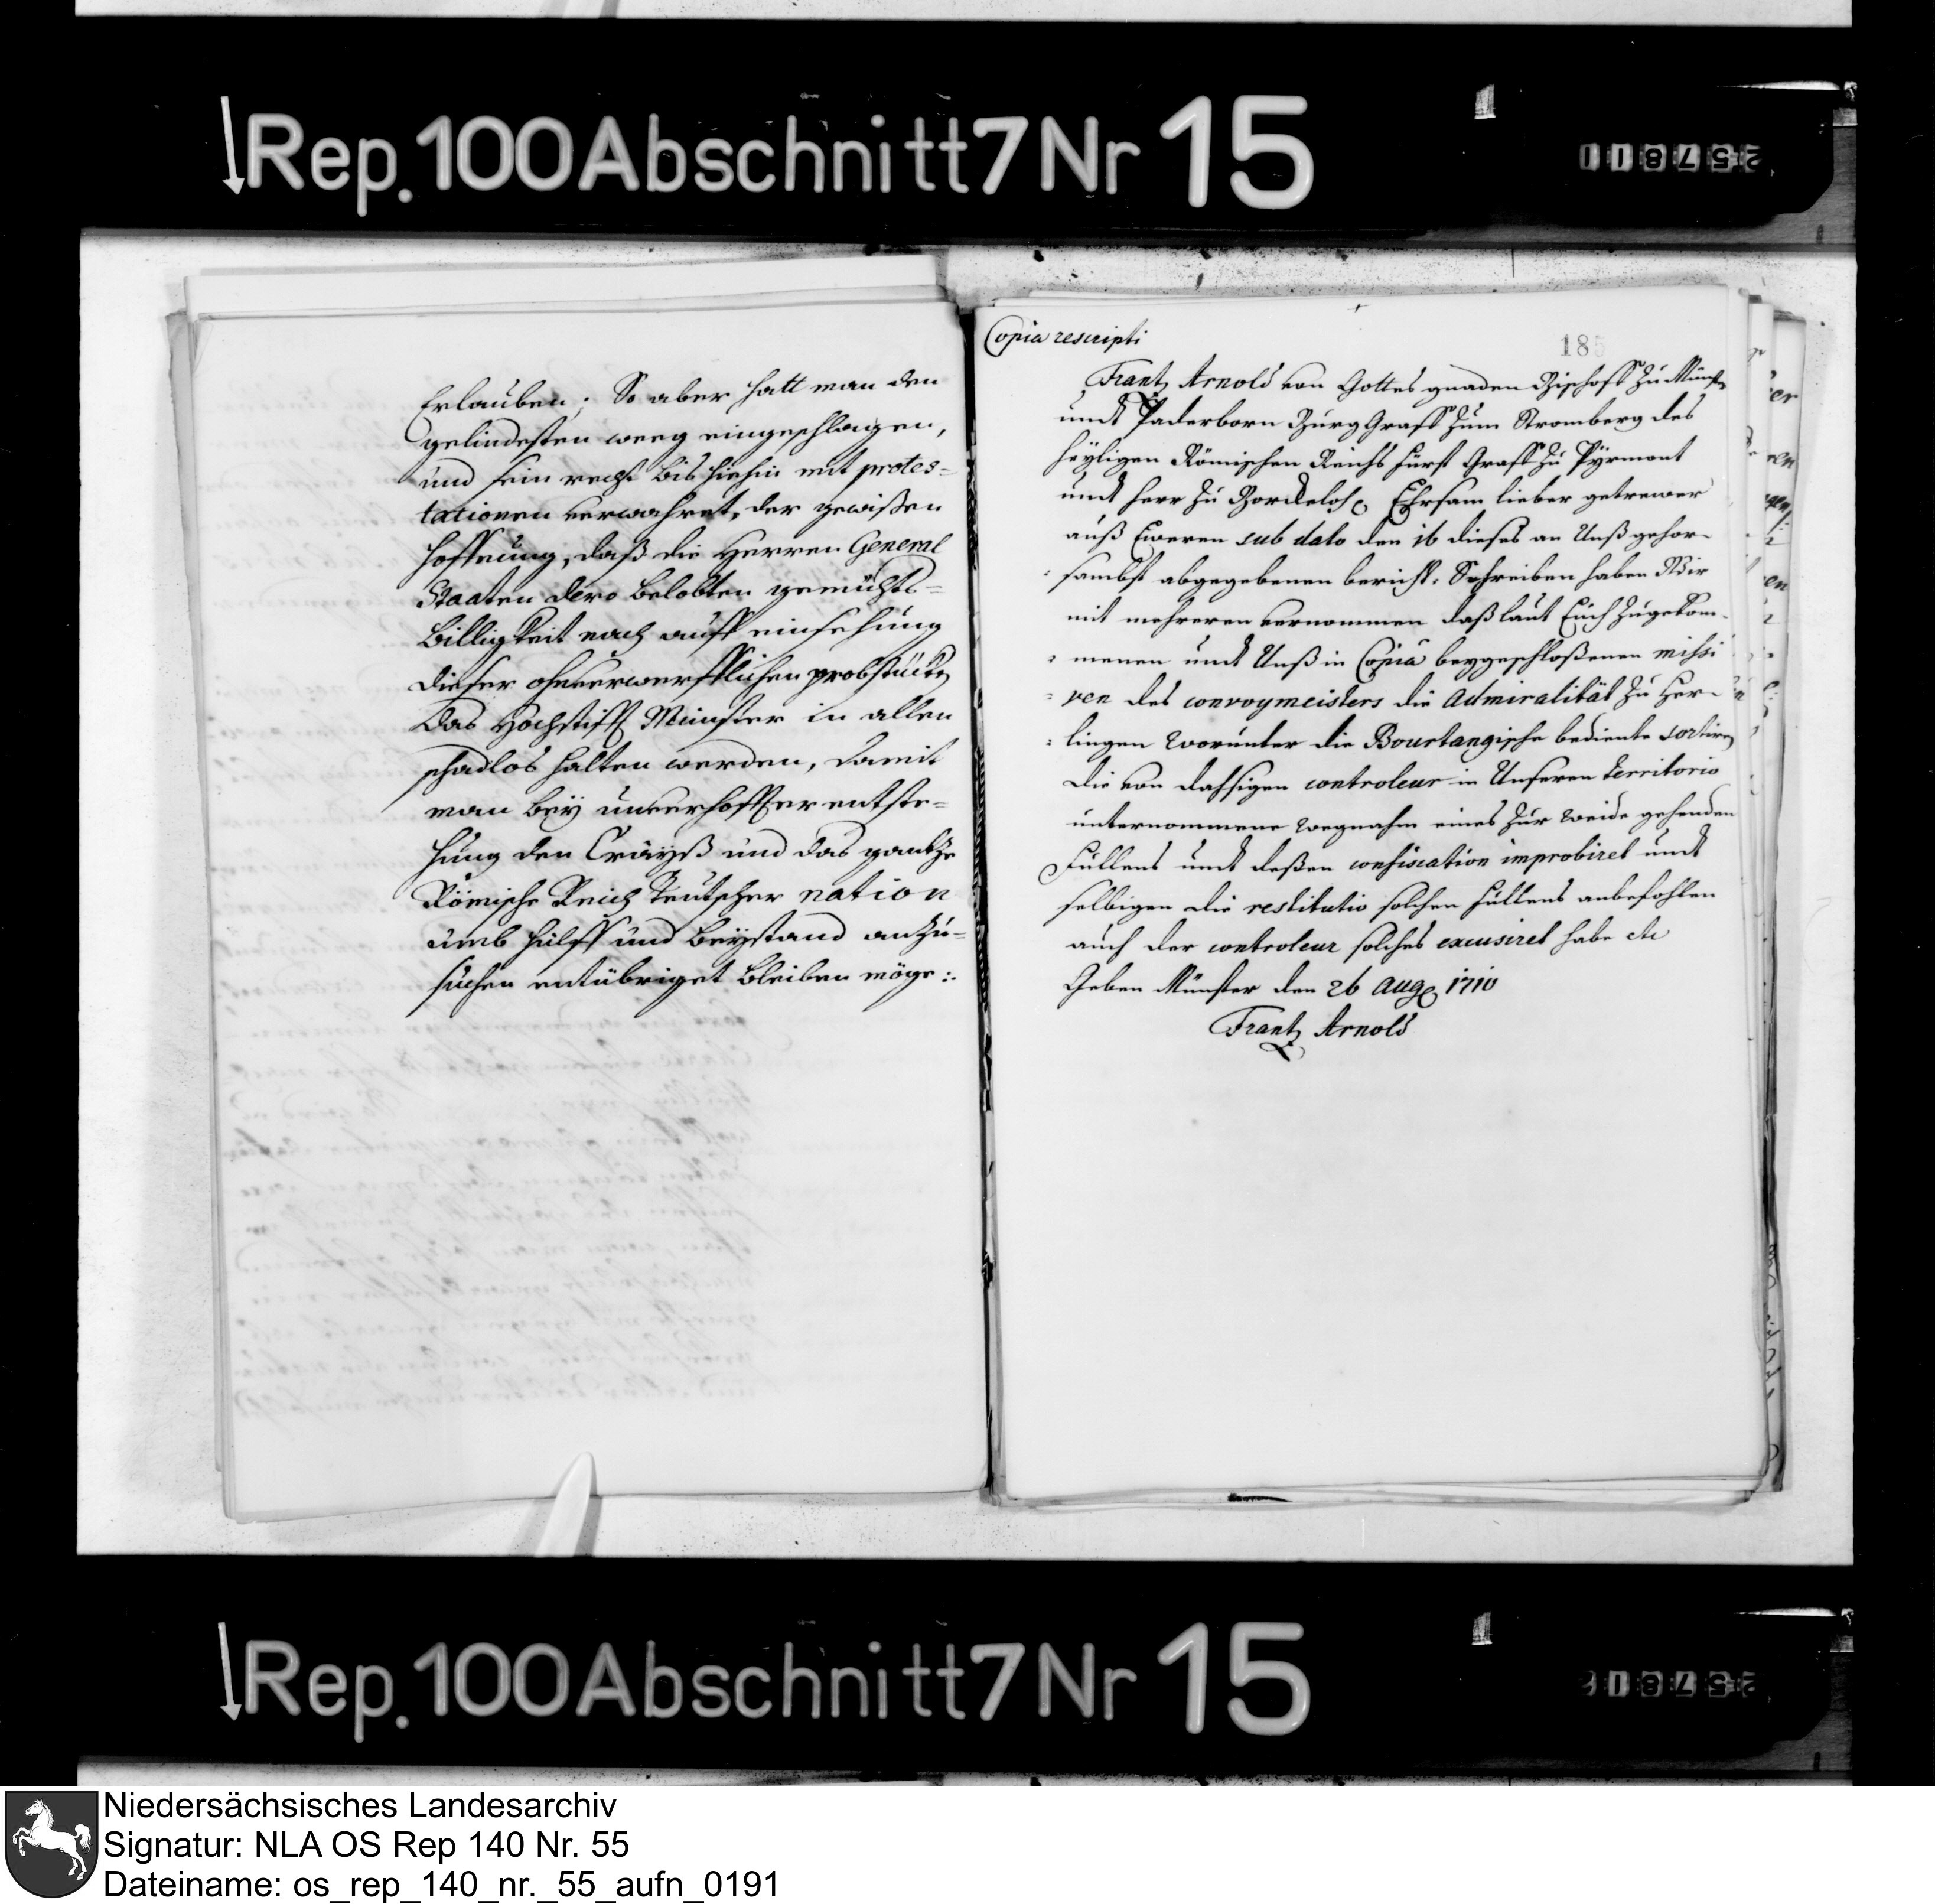 Rep. 100 Abschnitt 7 Nr 15
Erlauben; So aber hatt man den
gelindesten weeg eingeschlagen,
und sein recht bis hiehin mit protes=
tationen verwahret, der gewißen
hoffnung, daß die Herren General
Staaten dero belobten gemüths=
billigkeit nach auff einsehung
dieser ohnverwerfflichen probstücke
das Hochstifft Münster in allen
schadlos halten werden, damit
man bey unverhoffter entste=
hung den Crayß und das gantze
Römische Reich Teutscher nation
umb hülff und beystand anzu=
suchen entübriget bleiben möge:.
Copia rescripti
185
Frantz Arnold von Gottes gnaden Bischoff zu Münster
undt Paderborn Burg Graff zum Stromberg des
heyligen Römischen Reichs fürst Graff zu Pyrmont
undt Herr zu Borckeloh Ehrsam lieber getrewer
auß Eweren sub dato den 16 dieses an Unß gehor-
sambst abgegebenen bericht: Schreiben haben Wir
mit mehreren vernommen daß laut Euch zugekom-
menen undt Unß in Copia beygeschloßenen missi
ven des convoymeisters die Admiralität zu Har-
lingen worunter die Bourtangische bediente sortiren
die von dahsigen controleur in Unseren territorio
unternommene wegnahm eines zur weide gehenden
füllens undt deßen confiscation improbiret undt
selbigen die restitutio solchen füllens anbefohlen
auch der controleur solches excusiret habe etc
Geben Münster den 26 Aug 1710
Frantz Arnold
Rep. 100 Abschnitt 7 Nr 15
Niedersächsisches Landesarchiv
Signatur: NLA OS Rep 140 Nr. 55
Dateiname: os_rep_140_nr._55_aufn_0191